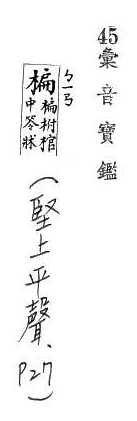 45彙音寶鑑
ㄅㄧㄢ
楄 楄柎棺
中笭牀
(堅上平聲、P27)